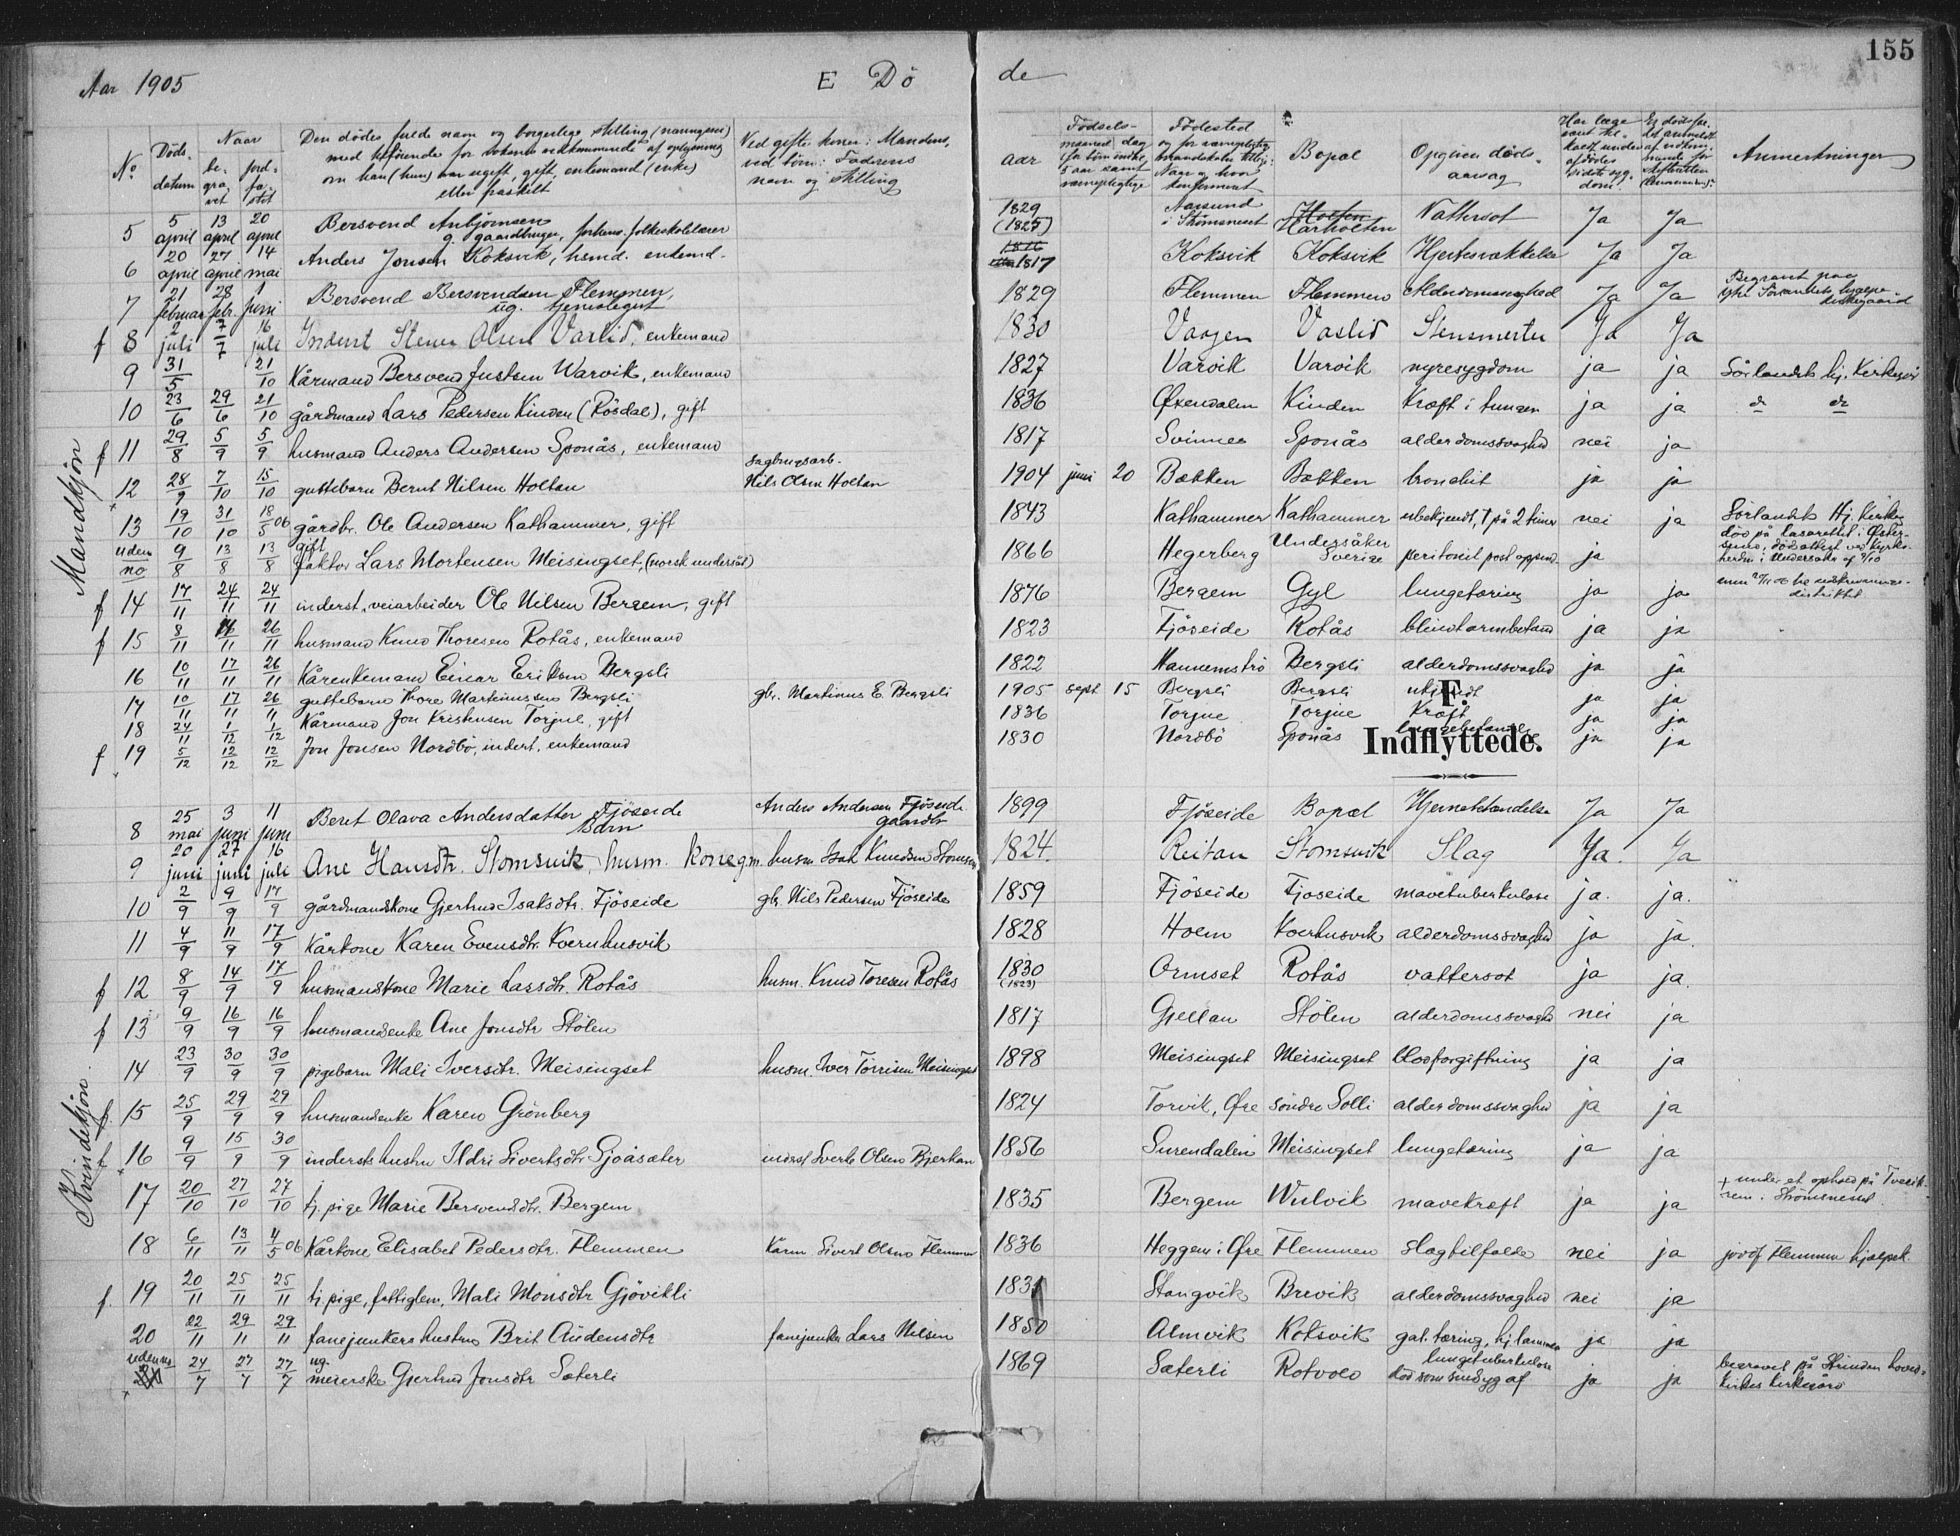 155
Aar 1905 E Dö de
No. Döds-datum Naar be-gra-vet jord-fæ-stet Den dödes fulde navn og borgerlige stilling (næringsvei) om han (hun) var ugift, gift, enkemand (enke) eller fraskilt Ved gifte koner: Mandens, ved börn: Faderens navn og stilling aar Födsels- Födested Bopæl Opgiven döds-aarsag Anmerkninger
Mandkjön
5 5 april 13 april 20 april Bersvend Anbjörnsen g. gaardbruger, forhenv. folkeskolelærer 1829 (1825) Aarsund i Strömsneset Holten Harholten Vattersot Ja Ja
6 20 april 27 april 14 mai Anders Jonsen Koksvik, husmd. enkemd. 1816 1817 Koksvik Koksvik Hjertesvækkelse Ja Ja
7 21 februar 28 febr. 1 juni Bersvend Bersvendsen Flemmen, ug. 1829 Flemmen Flemmen Alderdomssvaghed Ja Ja
f 8 2 juli 7/7 16 juli Inderst Stener Olsen Vaslid, enkemand 1830 Vaagen Vaslid Stensmerter Ja Ja
9 31/5 21/10 Kårmand Bersvend Justsen Warvik, enkemand 1827 Varvik Varvik nyresygdom ja ja Sörlandets hj. Kirkegår
10 23/6 29/6 21/10 gårdmand Lars Pedersen Kinden (Rösdal), gift 1836 Öxendalen Kinden Kræft i tungen ja ja do do
f 11 29/8 5/9 5/9 husmand Anders Andersen Sponås, enkemand 1817 Svinnes Sponås alderdomssvaghed nei ja
12 28/9 7/10 15/10 guttebarn Bernt Nilsen Holtan sagbrugsarb. Nils Olsen Holtan 1904 juni 20 Bækken Bækken bronchit ja ja
13 19/10 31/10 18/5 06 gårdbr. Ole Andersen Kathammer, gift 1843 Kathammer Kathammer ubekjendt, † på 2 timer nei ja Sörlandets Hj. Kirkeg.
uden no 9/8 13/8 13/8 gift faktor Lars Mortensen Meisingset, (norsk undersåt) 1866 Hegerberg Undersåker Sverige peritonit post append. ja död på Lasarettet i Öster-sund, dödsattest ved Kyrko-herden i Undersåker af 9/10
f 14 17/11 24/11 24/11 inderst, veiarbeider Ole Nilsen Bergem, gift 1876 Bergem Gyl lungetæring ja ja
f 15 8/11 16/11 26/11 husmand Knud Thoresen Rotås, enkemand 1823 Fjöseide Rotås blindtarmbetænd ja ja
16 10/11 17/11 26/11 Kårenkemand Einar Eriksen Bergsli 1822 Hannemstrø Bergsli alderdomssvaghed ja ja
17 10/11 17/11 26/11 guttebarn Thore Martinussen Bergsli gbr. Martinus E. Bergsli 1905 sept 15 Bergsli Bergsli ukjendt ja ja
18 24/11 1/12 1/12 Kårmand Jon Kristensen Torjul, gift 1836 Torjul Torjul Kræft ja ja
f 19 5/12 12/12 12/12 Jon Jonsen Nordbö, inderst, enkemand 1830 Nordbö Sponås ja ja
F.
Indflyttede.
Kvindekjön.
8 25 mai 3 juni 11 juni Beret Olava Andersdatter Fjöseide Barn Anders Andersen Fjöseide gaardbr 1899 Fjöseide Bopæl Hjernebetændelse Ja Ja
9 20 juni 27 juni 16 juli Ane Hansdtr. Stomsvik, husm. kone husm. Isak Knudsen Stomsvik 1824 Reitan Stomsvik Slag Ja. Ja
10 2/9 9/9 17/9 gårdmandskone Gjertrud Isaksdtr. Fjöseide gbr. Nils Pedersen Fjöseide 1859 Fjöseide Fjöseide mavetuberkulose ja. ja.
11 4/9 11/9 17/9 Kårkone Karen Evensdtr. Kvernhusvik 1828 Hoem Kverhusvik alderdomssvaghed ja ja.
f 12 8/9 14/9 17/9 husmandskone Marie Larsdtr. Rotås husm. Knud Toresen Rotås 1830 (1823) Ormset Rotås vattersot ja ja.
f 13 9/9 16/9 16/9 husmandsenke Ane Jonsdtr Stölen 1817 Gjellan Stölen alderdomssvaghed nei ja
14 23/9 30/9 30/9 pigebarn Mali Iversdtr. Meisingset husm. Iver Torrisen Meisingset 1898 Meisingset Meisingset blodforgiftning ja ja
f. 15 25/9 29/9 29/9 husmandsenke Karen Grönberg 1824 Torvik, Øre söndre Solli alderdomssvaghed ja ja
f 16 9/9 15/9 30/9 inderst hustru Ildri Sivertsdtr Sjöåsæter inderst Sverke Olsen Bjerkan 1856 Surendalen Meisingset lungetæring ja ja
17 20/10 27/10 27/10 tj. pige Marie Bersvendsdtr. Bergem 1835 Bergem Wulvik mavekræft ja ja † under et ophold på Tveek-rem i Strömsneset.
18 6/11 13/11 4/5 06 Kårkone Elisabet Pedersdtr. Flemmen Kårm. Sivert Olsen Flemmen 1836 Heggem i Øre Flemmen slagtilfælde nei ja jordf Flemmen hjælpek.
f. 19 20/11 25/11 25/11 tj. pige, fattiglem, Mali Monsdtr Gjövikli 1831 Stangvik Brevik alderdomssvaghed nei ja
20 22/11 29/11 29/11 fanejunkers hustru Brit Audensdtr fanejunker Lars Nilsen 1850 Almvik Koksvik gal. tæring, hj. lammelse ja ja
uden no 24/7 27/7 27/7 ug. meierske Gjertrud Jonsdtr Sæterli 1869 Sæterli Rotvold död som sindsyg af lungetuberkulose ja ja begravet på Strinden hoved-kirkes kirkegård